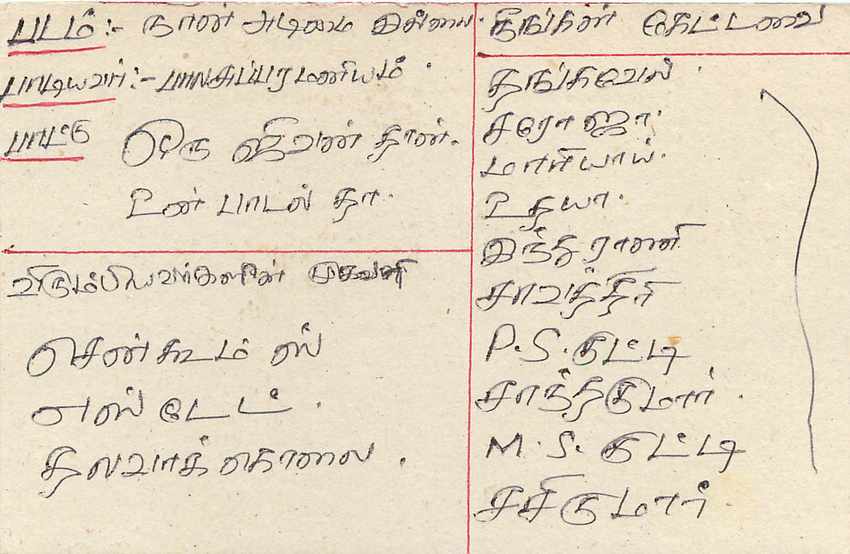 படம்:- நான் அடிமை இல்லை.
பாடியவர்:- பாலசுப்பரமணியம்.
பாட்டு ஒரு ஜீவன் தான்.
உன் பாடல் தா.
விரும்பியவர்களின் முகவரி
சென்கூடம் ஸ்
எஸ்டேட்.
தலவாக்கொலை.
நீங்கள் கேட்டவை
தங்கவேல்.
சரோஜா.
மாரியாய்.
உதயா.
இந்திராணி
சாவித்திரி
P.S.குட்டி
சாந்தகுமார்.
M.S.குட்டி
சசிகுமார்